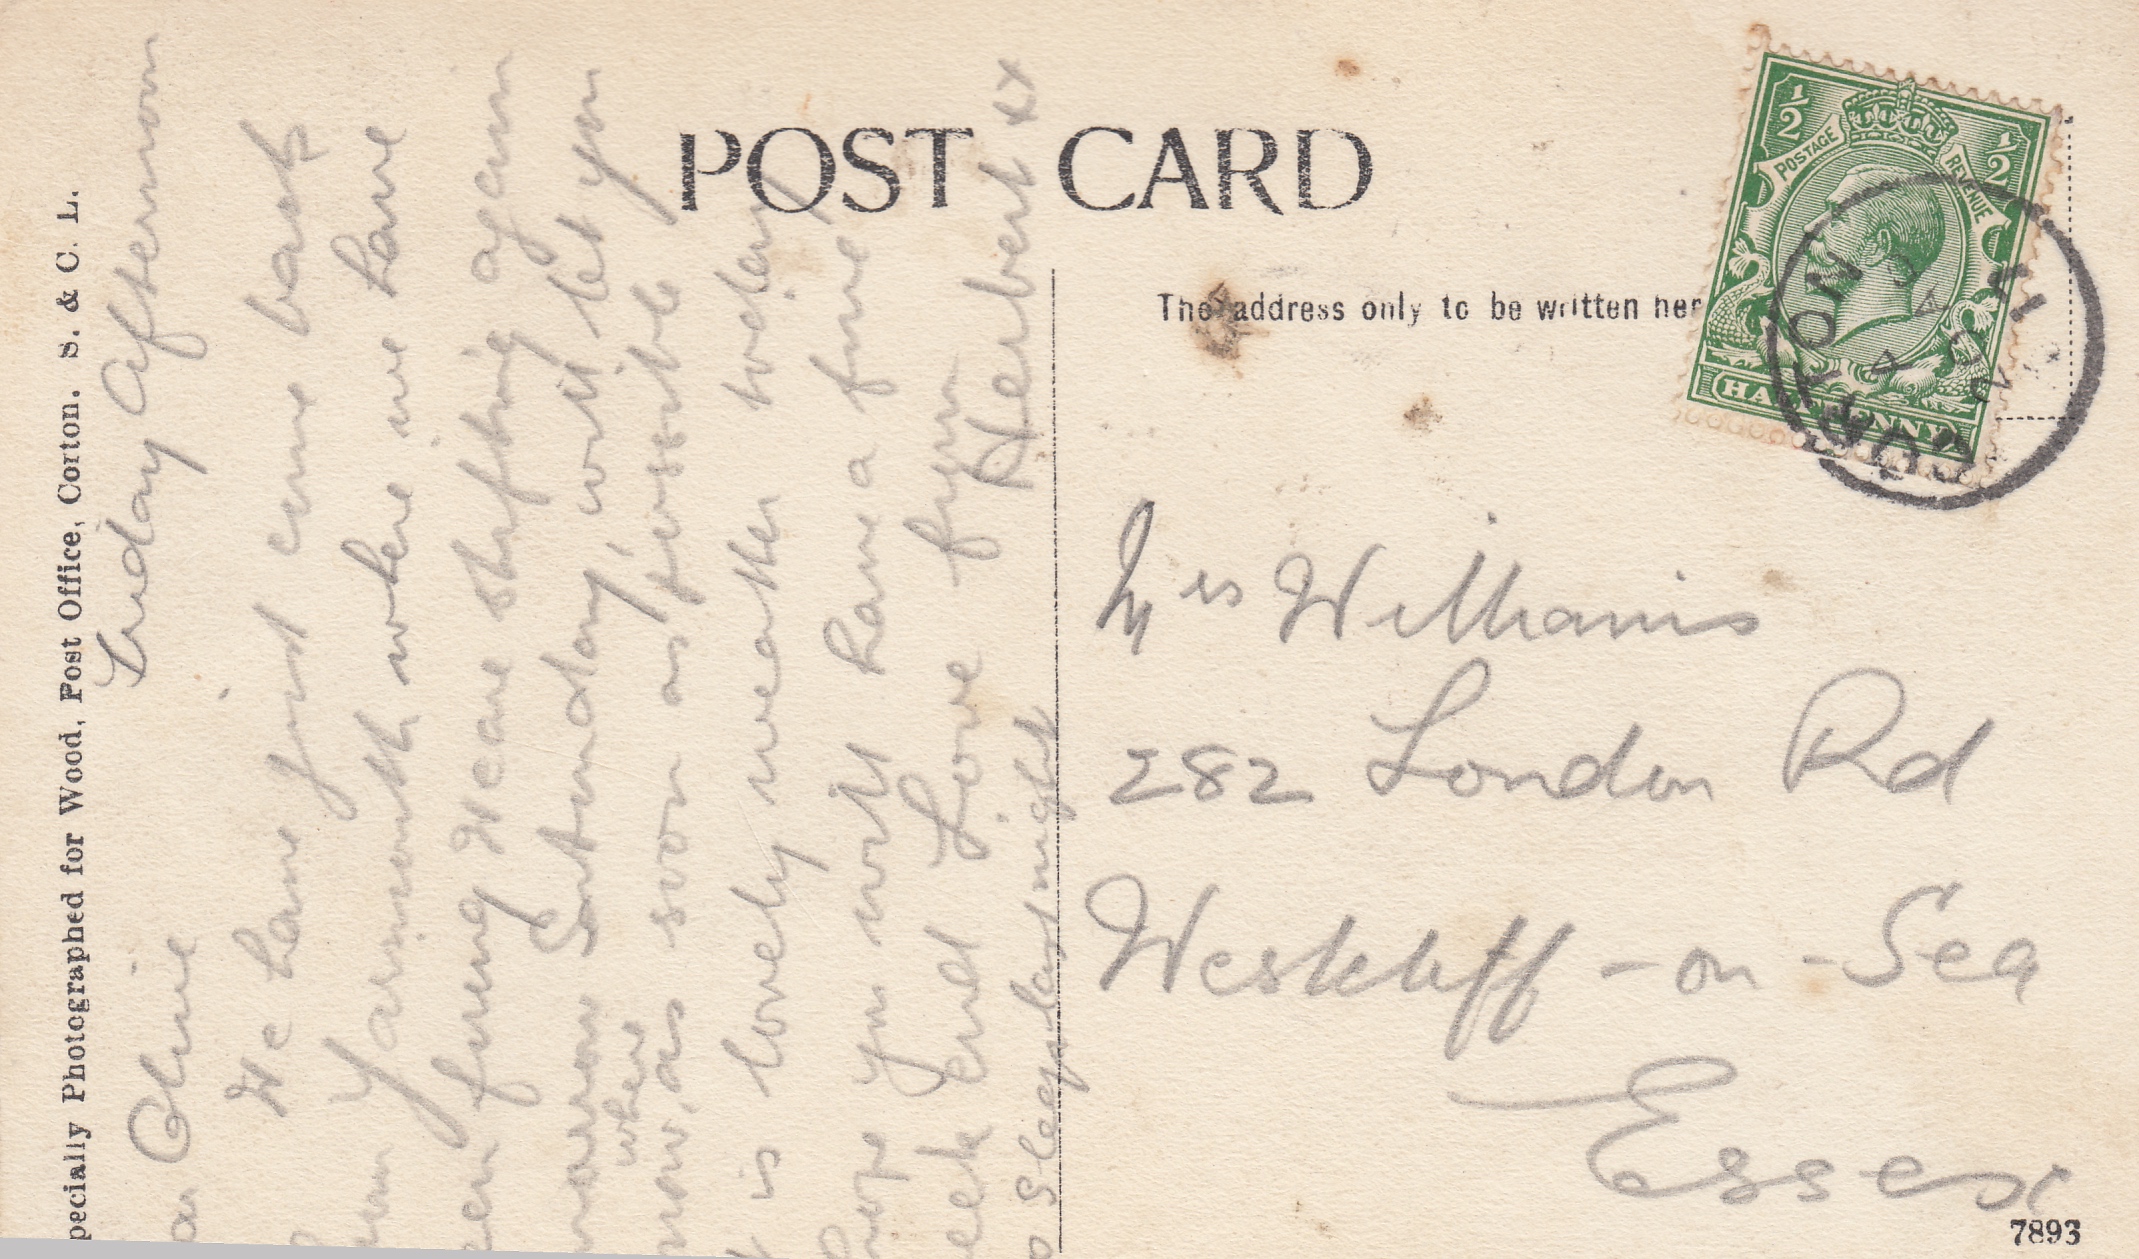 POST CARD
The address only to be written her
pecially Photographed for Wood, Post Office, Corton. S. & C. L.
Friday Afternoon
Olive
We have just come back
Yarmouth where we have
firing We are shifting again
Saturday, will let you
when
now, as soon as possible
is lovely weather today
hope you will have a fine
eek End Love from
Herbert xx
Sleep last night
Mrs Williams
282 London Rd
Westcliff-on-Sea
Essex
7893
½ ½
POSTAGE REVENUE
HALFPENNY